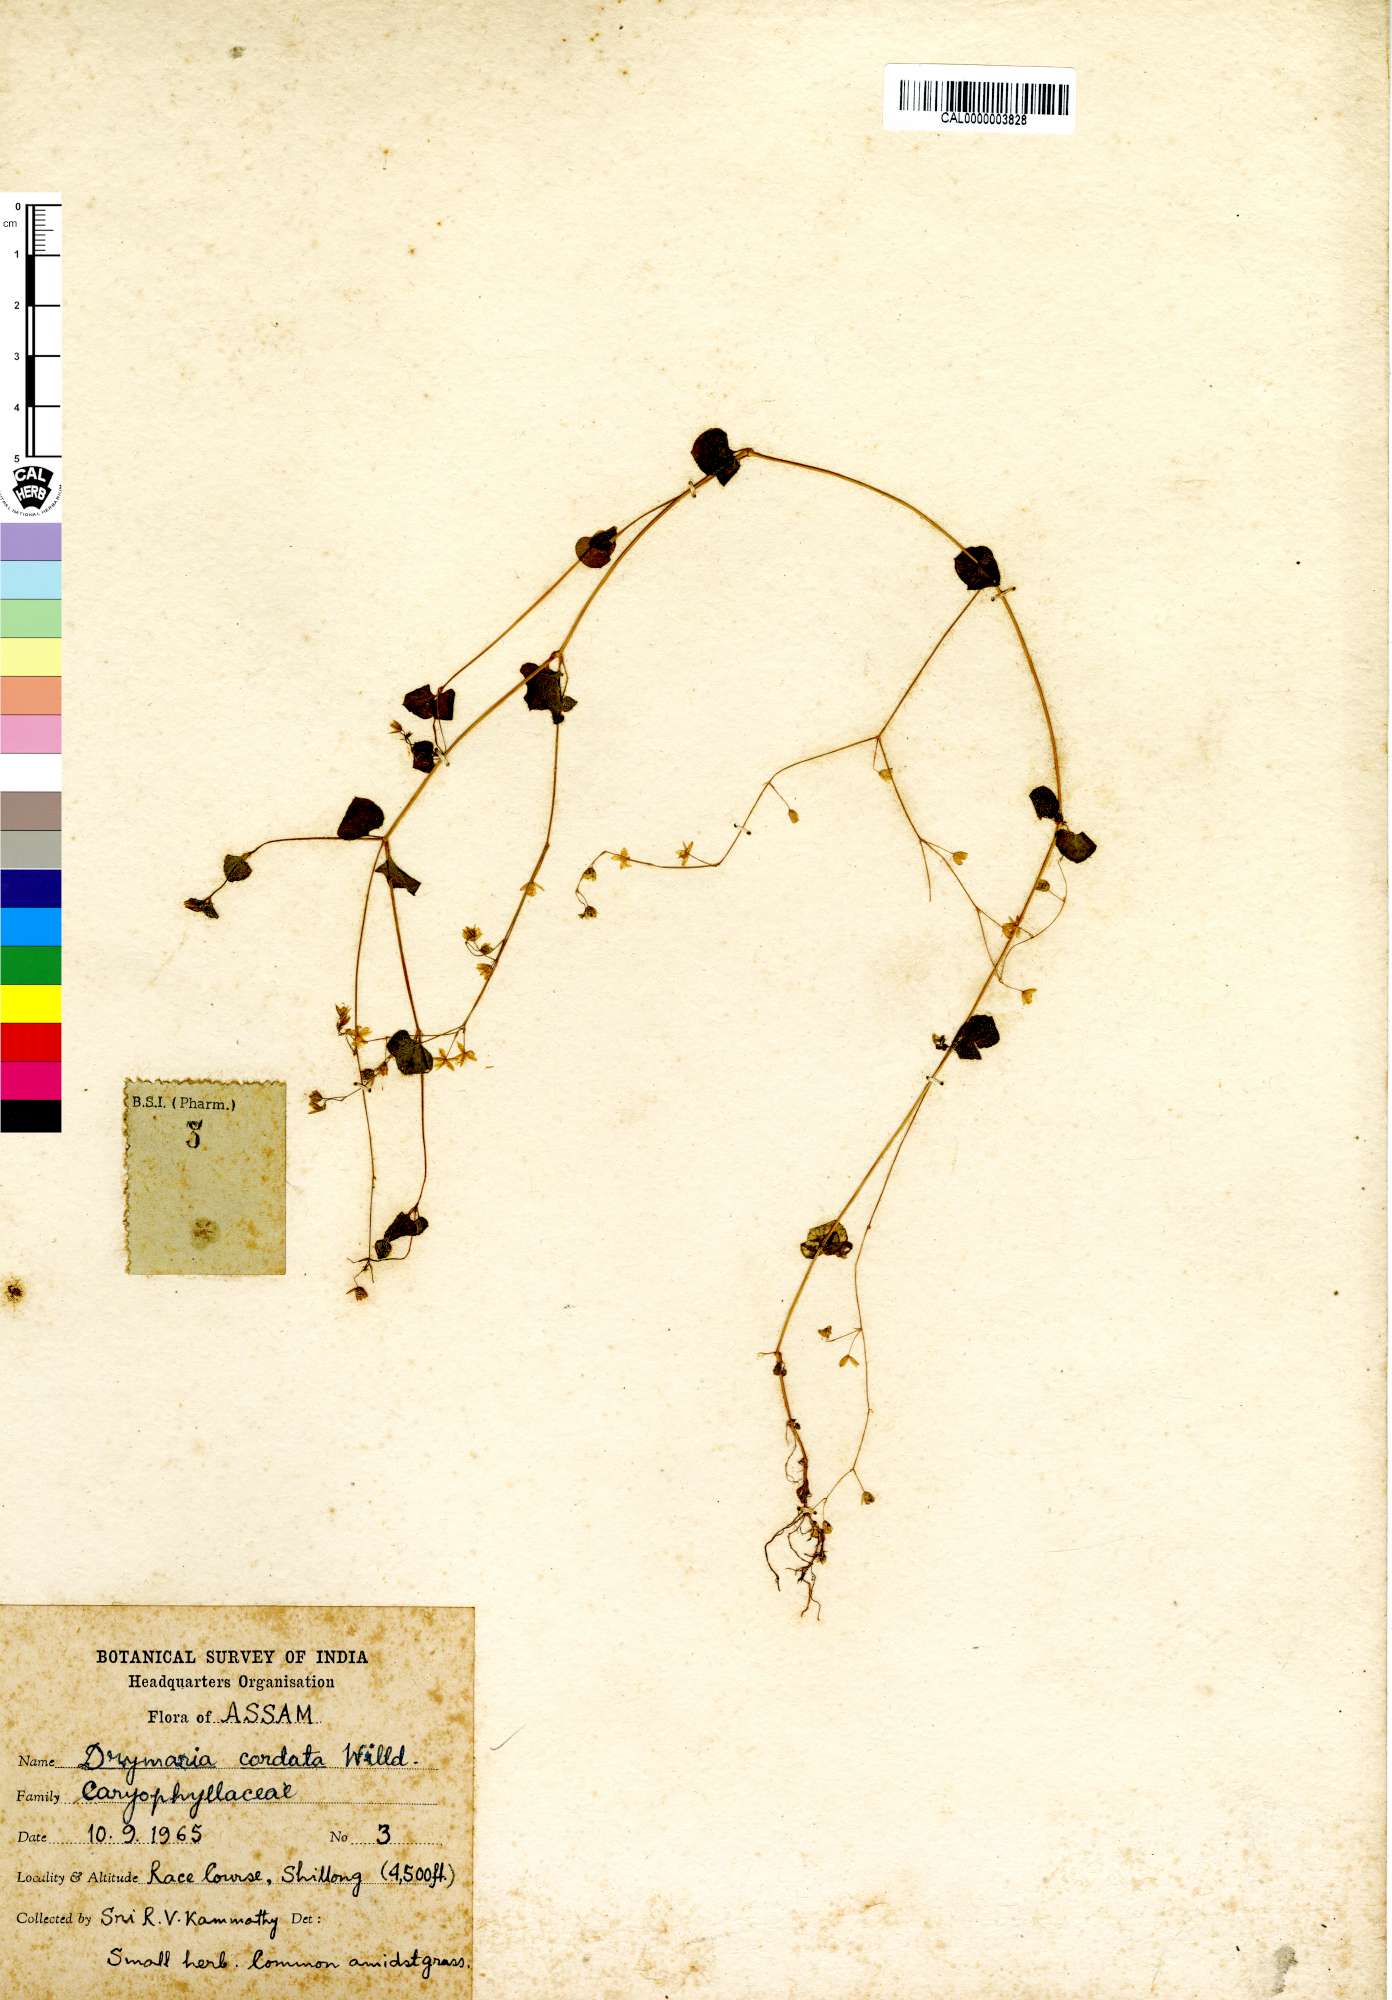 CAL0000003828
0
cm
1
2
3
4
5
CAL
HERB
B.S.I. (Pharm.)
3
BOTANICAL SURVEY OF INDIA
Headquarters Organisation
Flora of ASSAM
Name Drymaria cordata Willd.
Family Caryophyllaceae
Date 10.9.1965 No 3
Locality & Altitude Race Course, Shillong (4,500ft.)
Collected by Sri R.V. Kammathy Det:
Small herb. Common amidst grass.